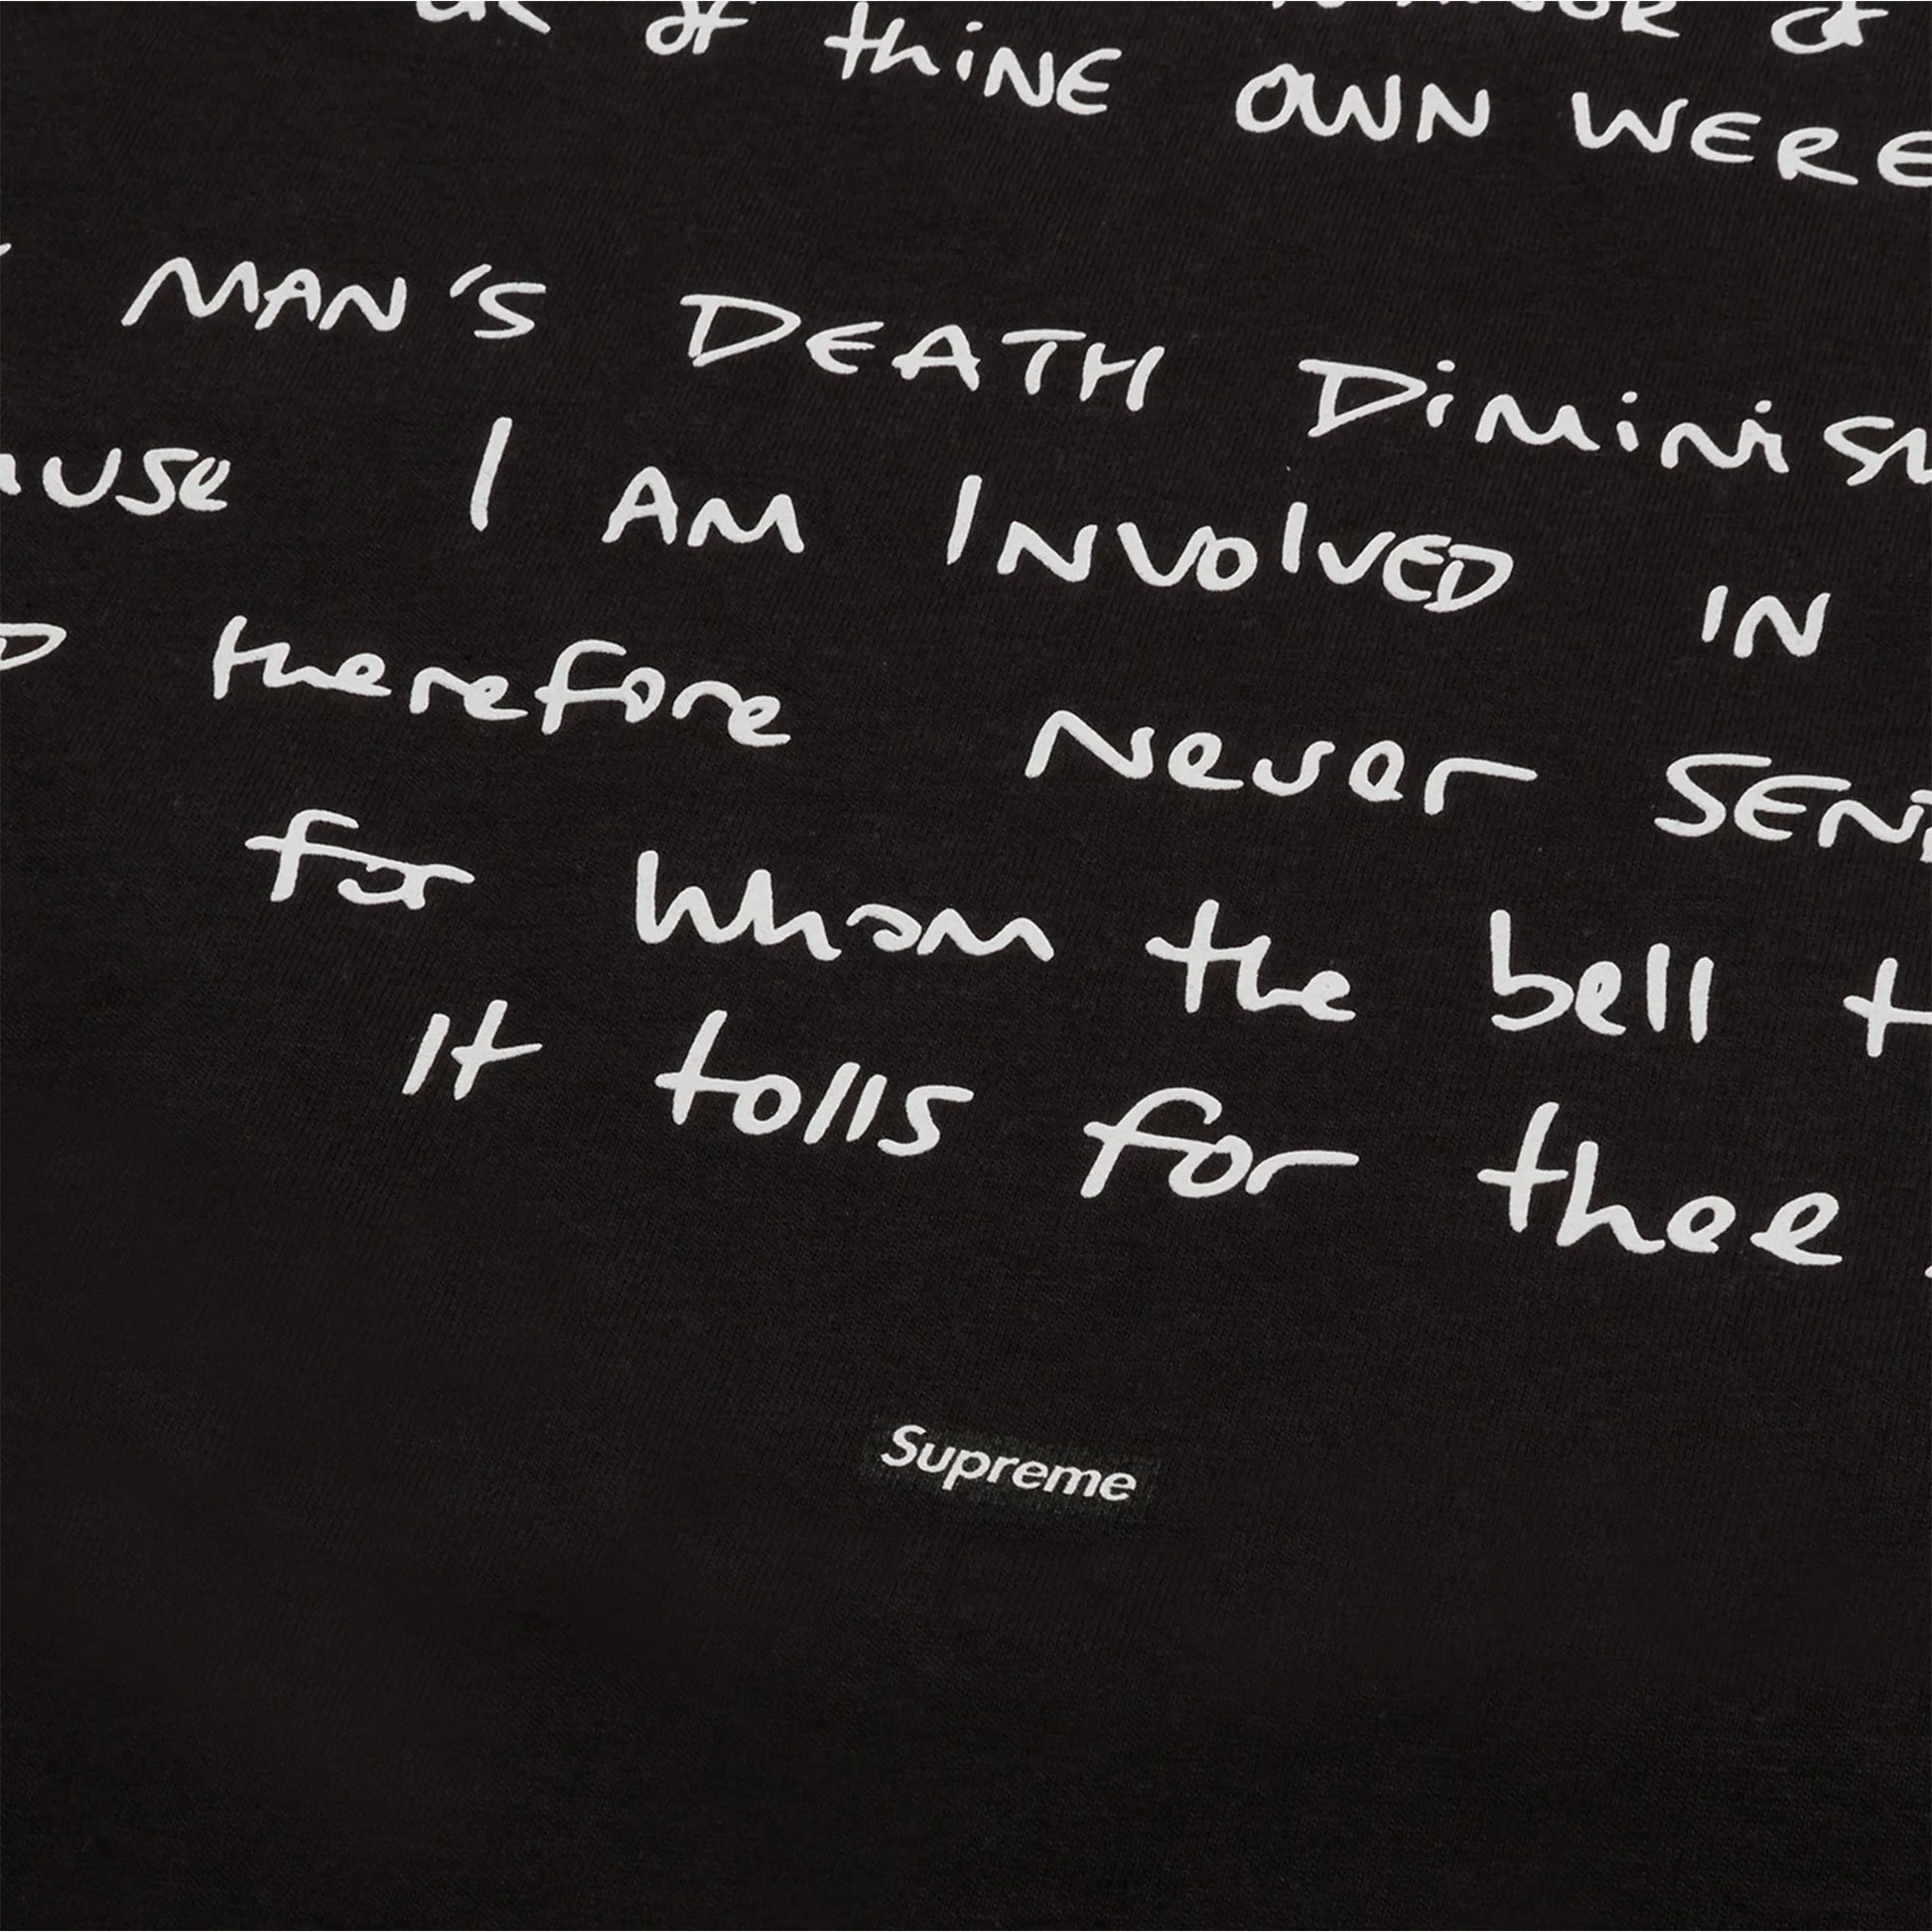 of thine OWN WERE
MAN'S DEATH Diminish
ause I AM INVOLVED IN
D therefore Never SEND
for Whom the bell t
It tolls for thee.
Supreme